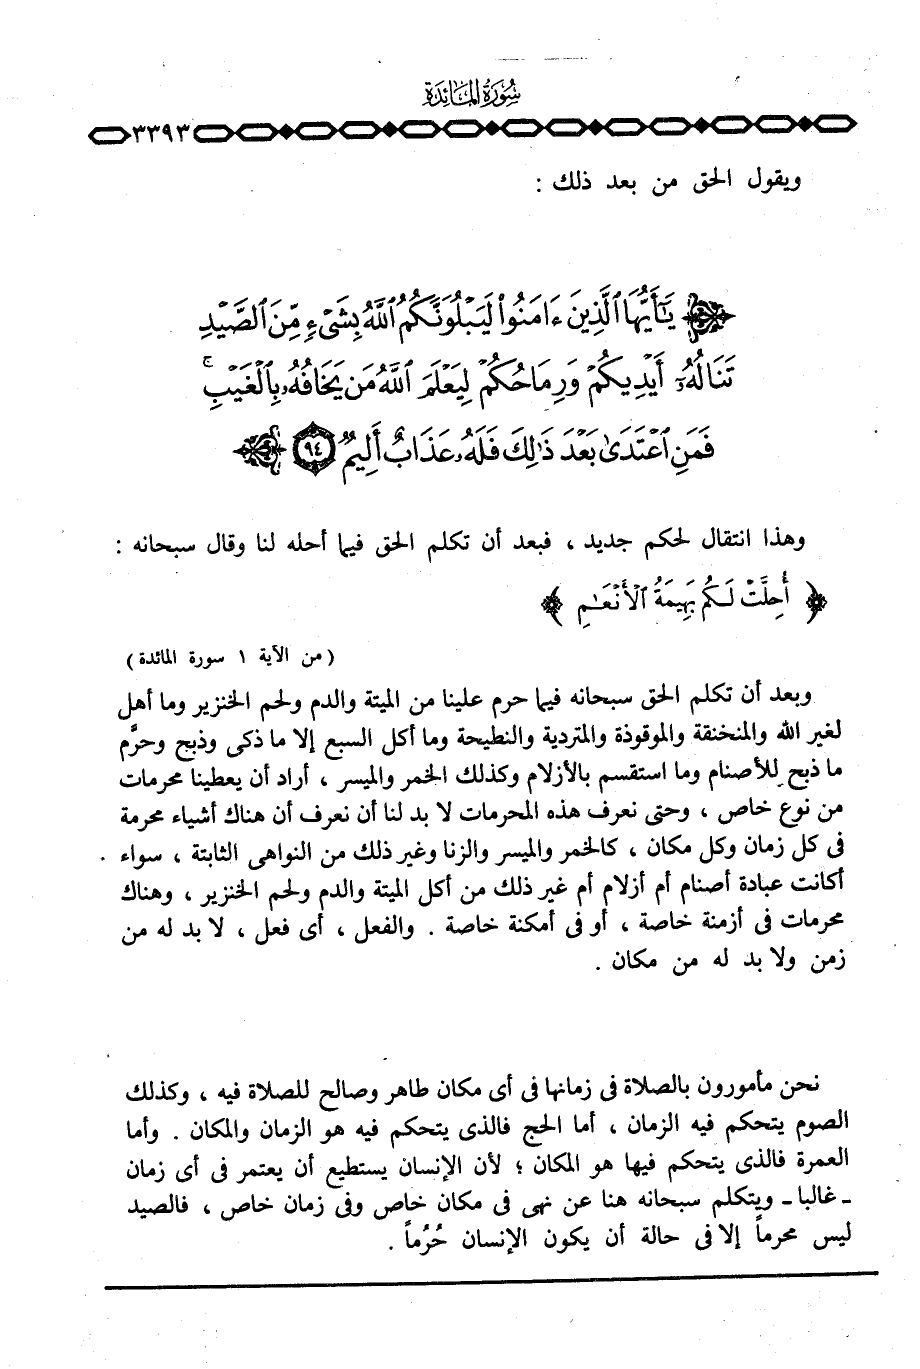 سُورَةُ المَائِدَة
٣٣٩٣
ويقول الحق من بعد ذلك :
يَٰٓأَيُّهَا ٱلَّذِينَ ءَامَنُواْ لَيَبْلُوَنَّكُمُ ٱللَّهُ بِشَىْءٍ مِّنَ ٱلصَّيْدِ
تَنَالُهُۥٓ أَيْدِيكُمْ وَرِمَاحُكُمْ لِيَعْلَمَ ٱللَّهُ مَن يَخَافُهُۥ بِٱلْغَيْبِ ۚ
فَمَنِ ٱعْتَدَىٰ بَعْدَ ذَٰلِكَ فَلَهُۥ عَذَابٌ أَلِيمٌ ٩٤
وهذا انتقال لحكم جديد ، فبعد أن تكلم الحق فيما أحله لنا وقال سبحانه :
﴿ أُحِلَّتْ لَكُم بَهِيمَةُ ٱلْأَنْعَٰمِ ﴾
( من الآية ١ سورة المائدة )
وبعد أن تكلم الحق سبحانه فيما حرم علينا من الميتة والدم ولحم الخنزير وما أهل
لغير الله والمنخنقة والموقوذة والمتردية والنطيحة وما أكل السبع إلا ما ذكى وذبح وحرَّم
ما ذبح للأصنام وما استقسم بالأزلام وكذلك الخمر والميسر ، أراد أن يعطينا محرمات
من نوع خاص ، وحتى نعرف هذه المحرمات لا بد لنا أن نعرف أن هناك أشياء محرمة
فى كل زمان وكل مكان ، كالخمر والميسر والزنا وغير ذلك من النواهى الثابتة ، سواء
أكانت عبادة أصنام أم أزلام أم غير ذلك من أكل الميتة والدم ولحم الخنزير ، وهناك
محرمات فى أزمنة خاصة ، أو فى أمكنة خاصة . والفعل ، أى فعل ، لا بد له من
زمن ولا بد له من مكان .
نحن مأمورون بالصلاة فى زمانها فى أى مكان طاهر وصالح للصلاة فيه ، وكذلك
الصوم يتحكم فيه الزمان ، أما الحج فالذى يتحكم فيه هو الزمان والمكان . وأما
العمرة فالذى يتحكم فيها هو المكان ؛ لأن الإنسان يستطيع أن يعتمر فى أى زمان
ـ غالبا ـ ويتكلم سبحانه هنا عن نهى فى مكان خاص وفى زمان خاص ، فالصيد
ليس محرماً إلا فى حالة أن يكون الإنسان حُرُماً .